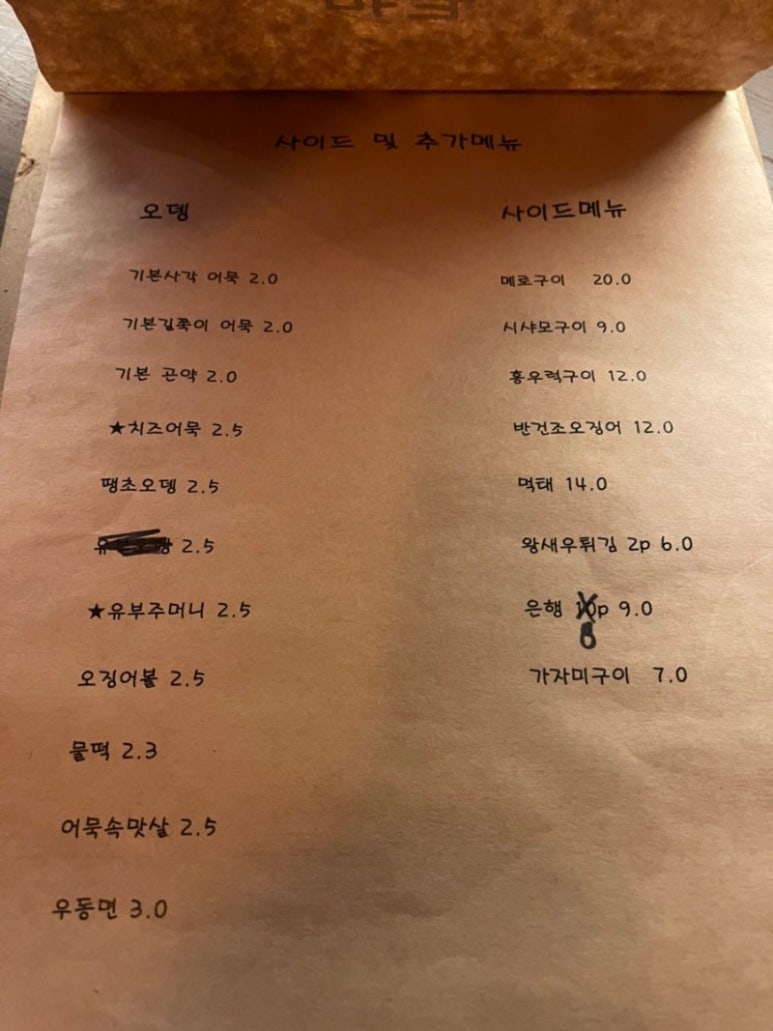 사이드 및 추가메뉴
오뎅
기본사각 어묵 2.0
기본길쭉이 어묵 2.0
기본 곤약 2.0
★치즈어묵 2.5
땡초오뎅 2.5
2.5
★유부주머니 2.5
오징어볼 2.5
물떡 2.3
어묵속맛살 2.5
우동면 3.0
사이드메뉴
메로구이 20.0
시샤모구이 9.0
홍우럭구이 12.0
반건조오징어 12.0
먹태 14.0
왕새우튀김 2p 6.0
은행 10p 9.0
8
가자미구이 7.0